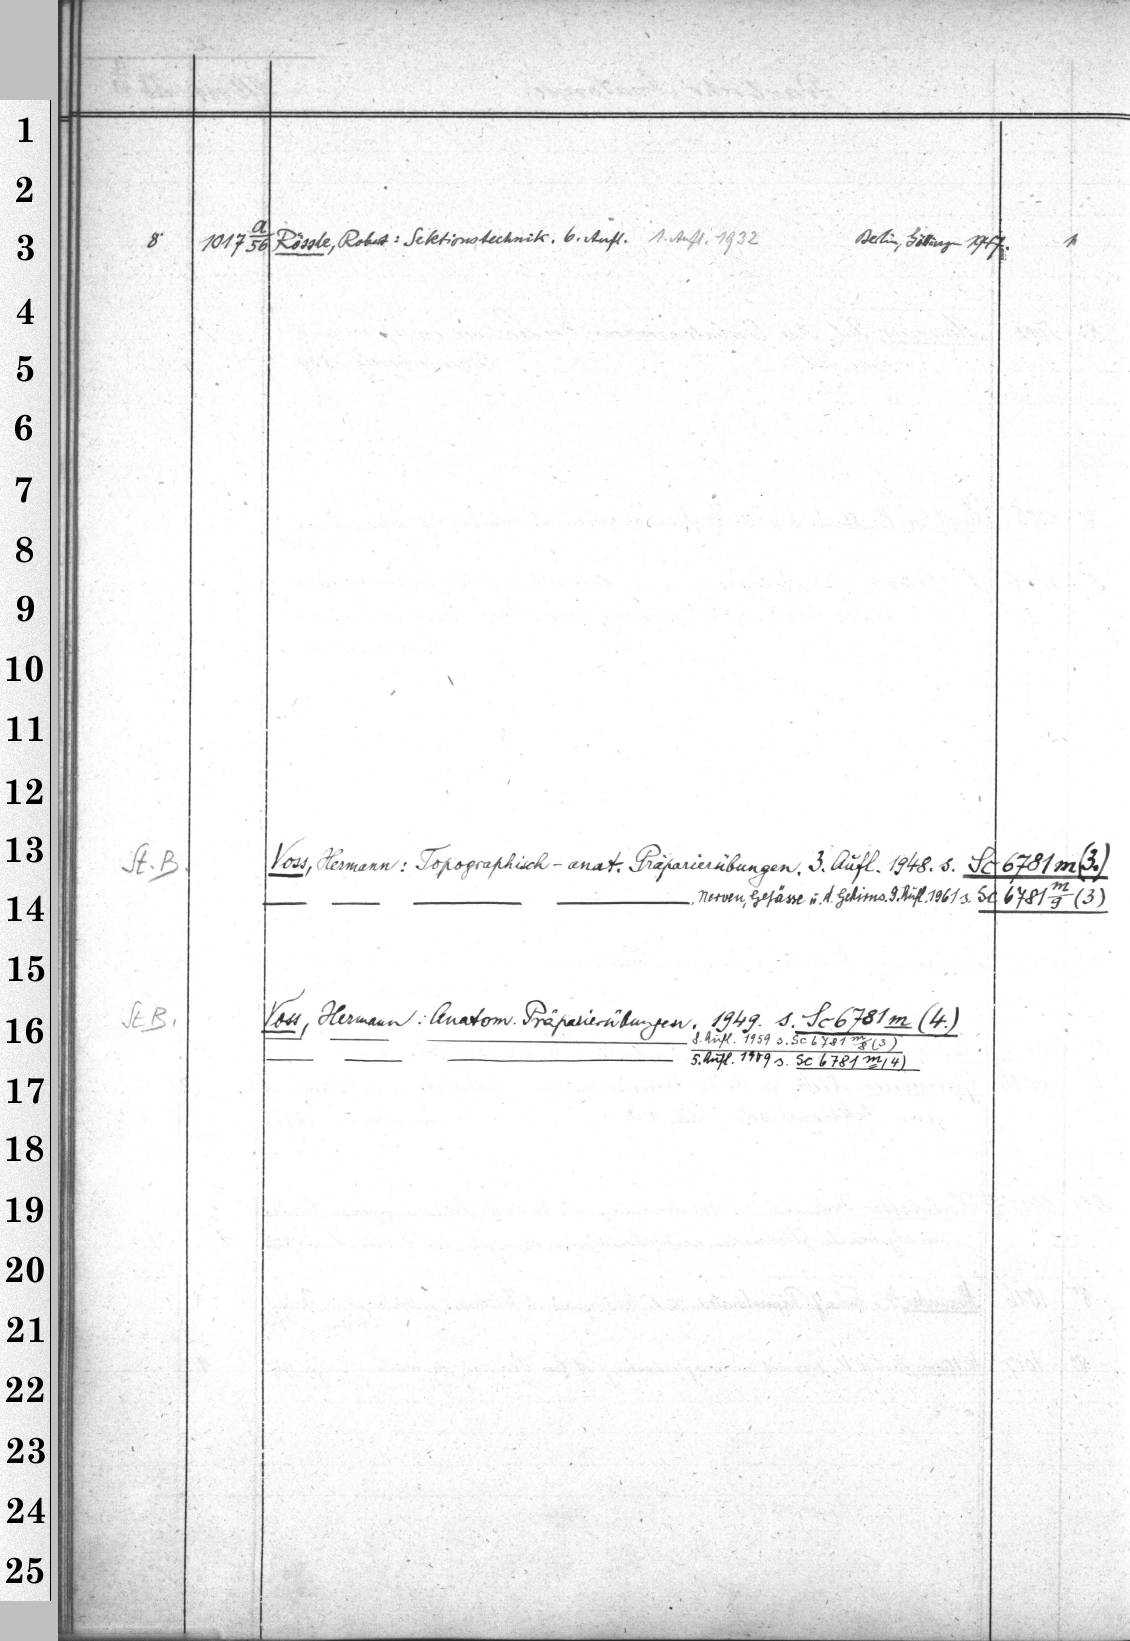 1
2
3
8° 1017 a/56 Rössle, Robert: Sektionstechnik. 6. Aufl. 1. Aufl. 1932 Berlin, Göttingen 1
4
5
6
7
8
9
10
11
12
13
St. B. Voss, Hermann: Topographisch-anat. Präparierübungen. 3. Aufl. 1948. s. Sc 6781 m (3.)
14
— — — — . Nerven, Gefässe u. d. Gehirns. 9. Aufl. 1961 s. Sc 6781 m/9 (3)
15
16
St B. Voss, Hermann: Anatom. Präparierübungen. 1949. s. Sc 6781 m (4.)
— — 8. Aufl. 1959 s. Sc 6781 m/8 (3)
— — — 5. Aufl. s. Sc 6781 m (4)
17
18
19
20
21
22
23
24
25